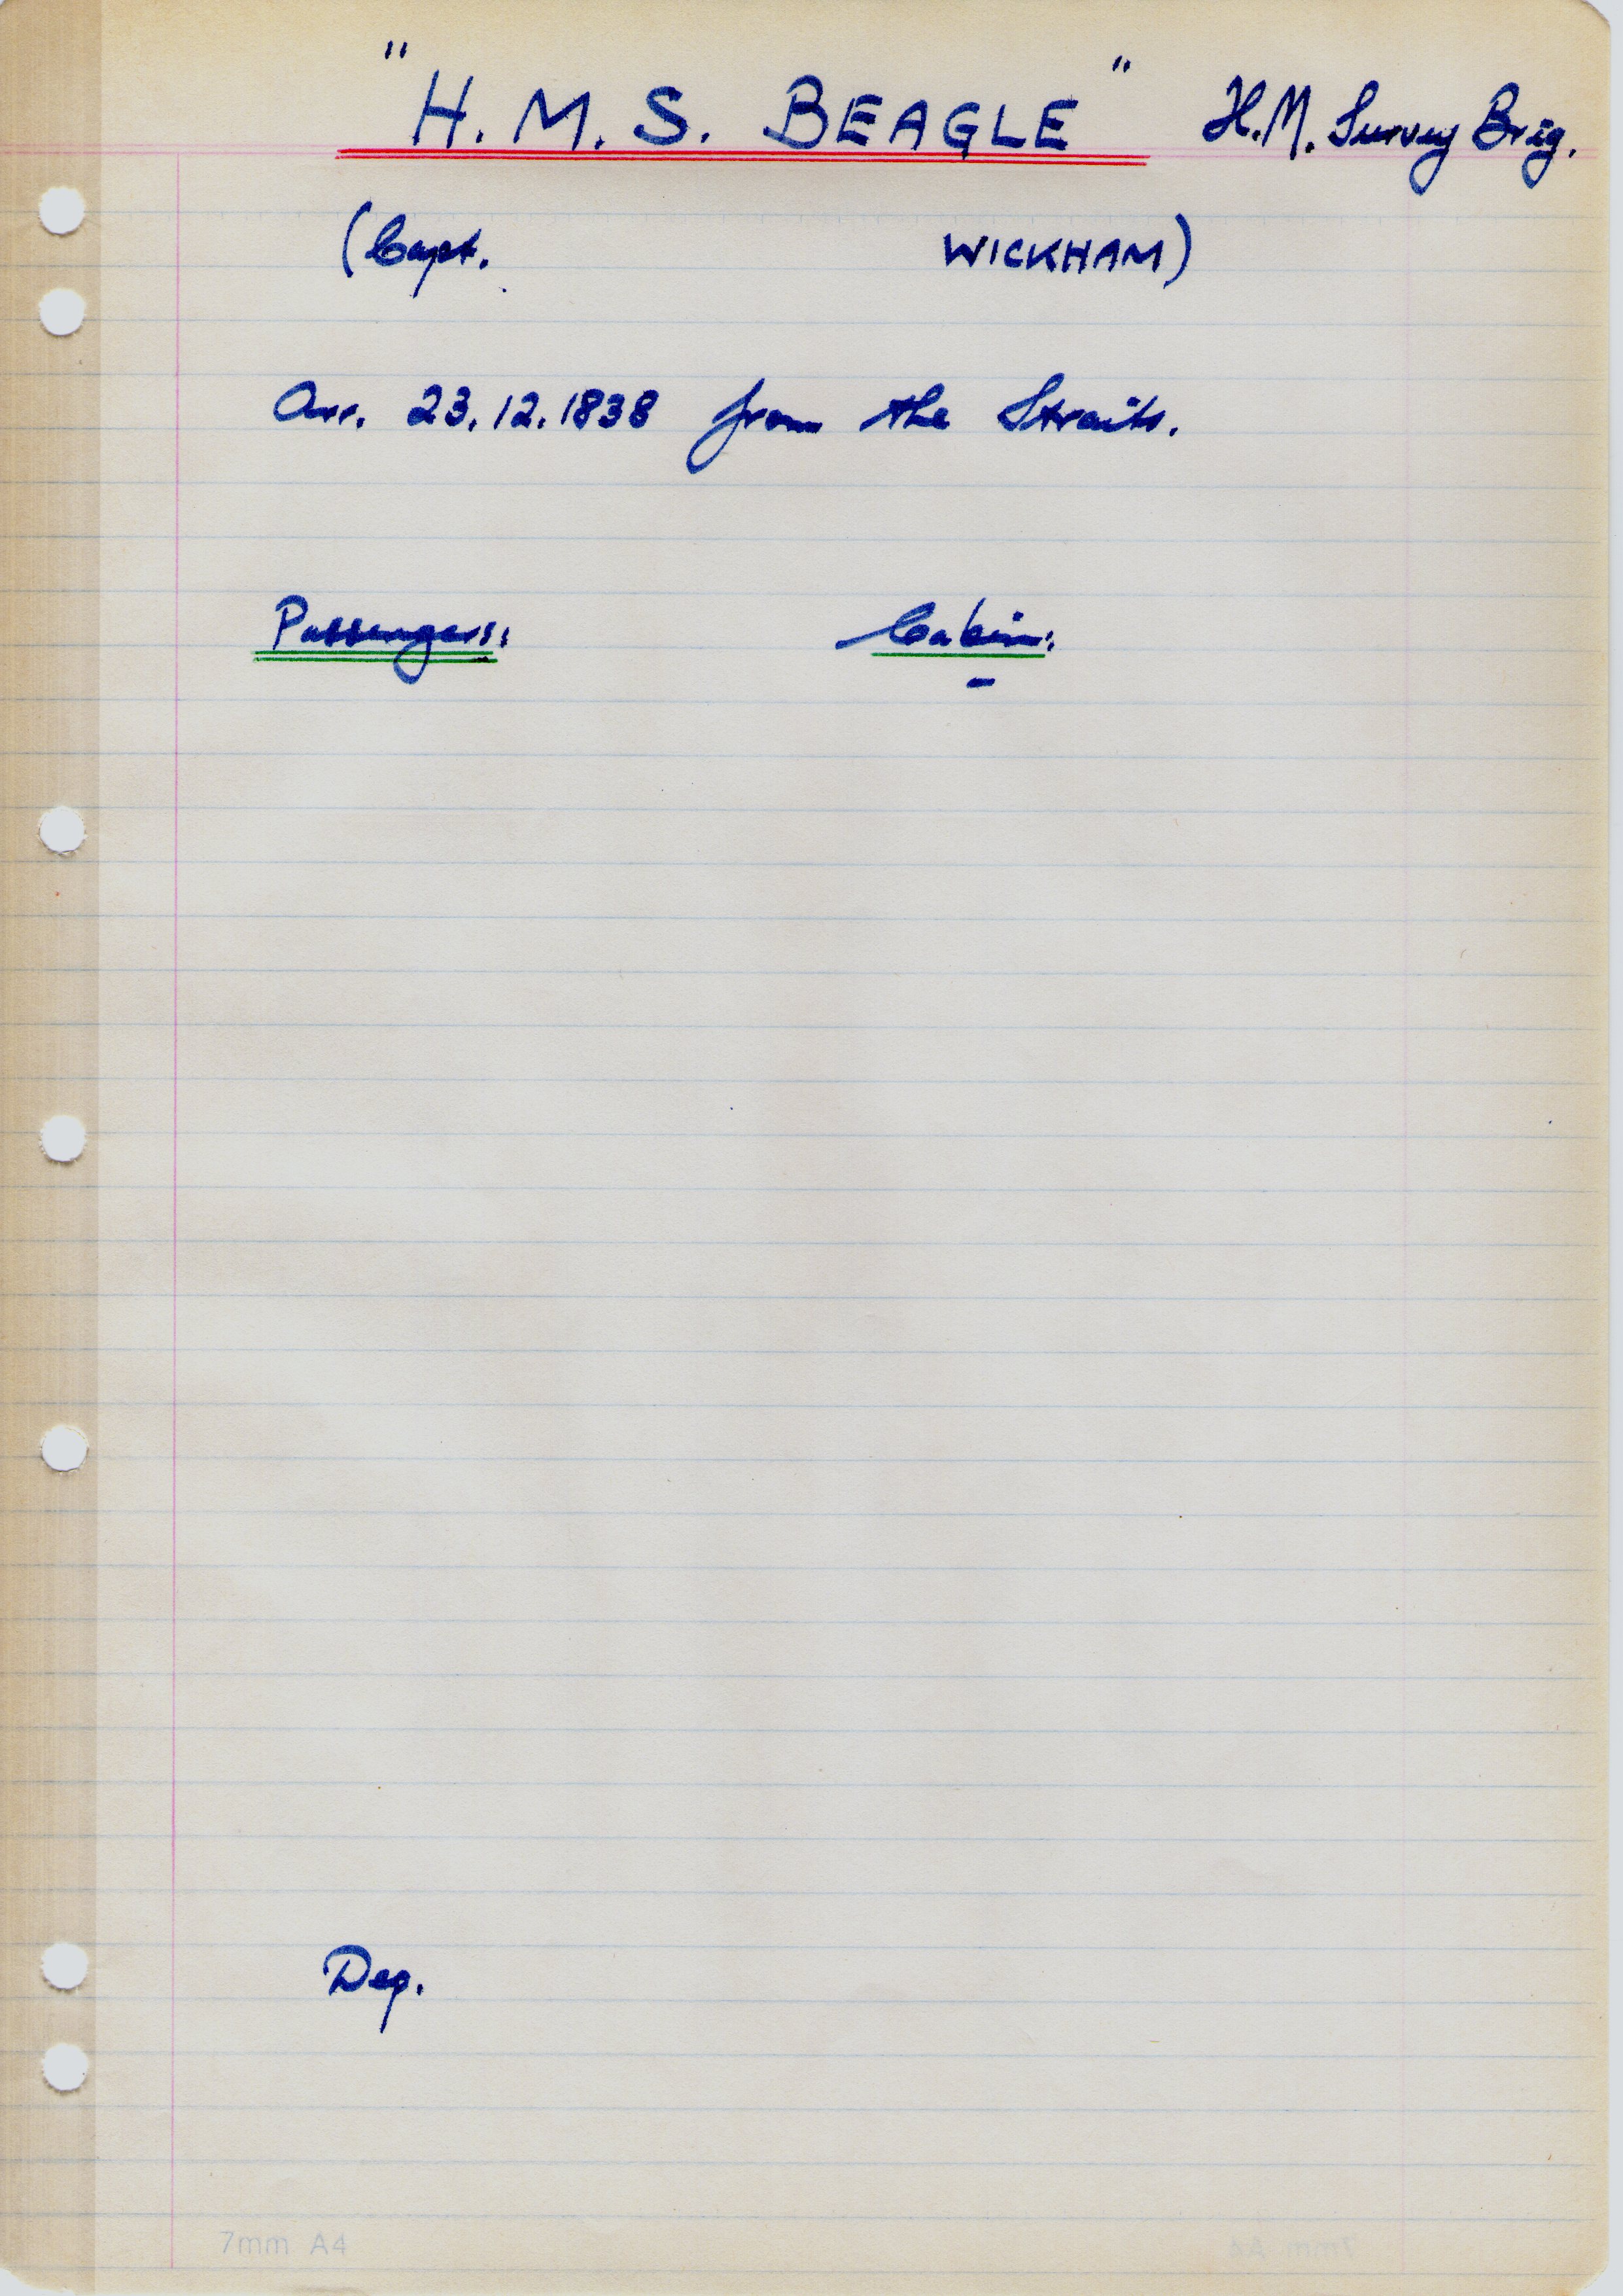 "H. M. S. BEAGLE" H.M. Survey Brig.
(Capt. WICKHAM)
Arr. 23.12.1838 from the Straits.
Passengers: Cabin:
-
Dep.
7mm A4